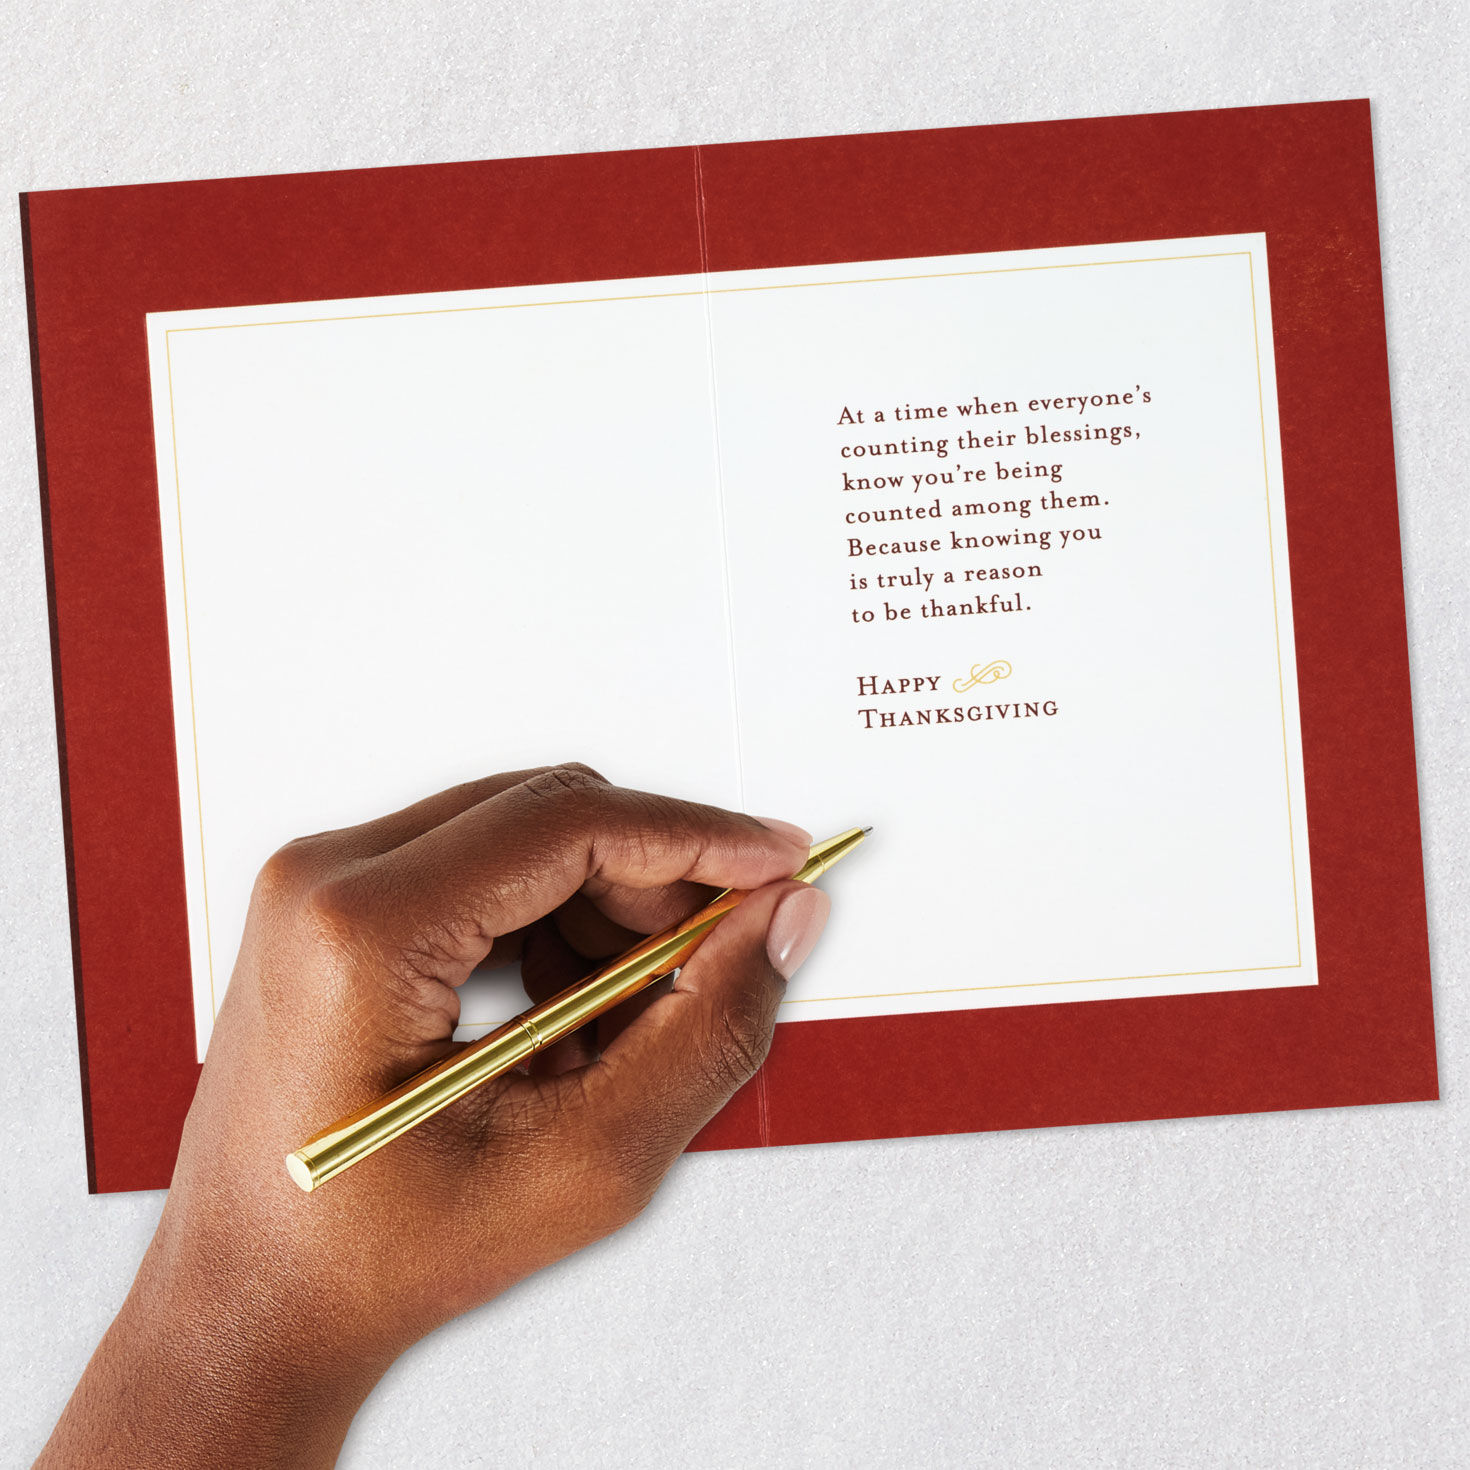 At a time when everyone's
counting their blessings,
know you're being
counted among them.
Because knowing you
is truly a reason
to be thankful.
HAPPY
THANKSGIVING